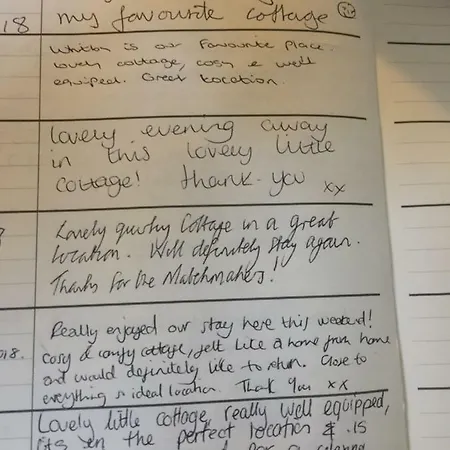 18
my favourite cottage
Whitby is our favourite place.
lovely cottage, cosy & well
equiped. Great Location.
Lovely evening away
in this lovely little
cottage! Thank-you xx
Lovely quirky Cottage in a great
location. Will definitely stay again.
Thanks for the Matchmakers!
Really enjoyed our stay here this weekend!
018. Cosy & comfy cottage, felt like a home from home
and would definitely like to return. Close to
everything so ideal location. Thank You xx
Lovely little cottage, really well equipped,
its in the perfect location & is
for a